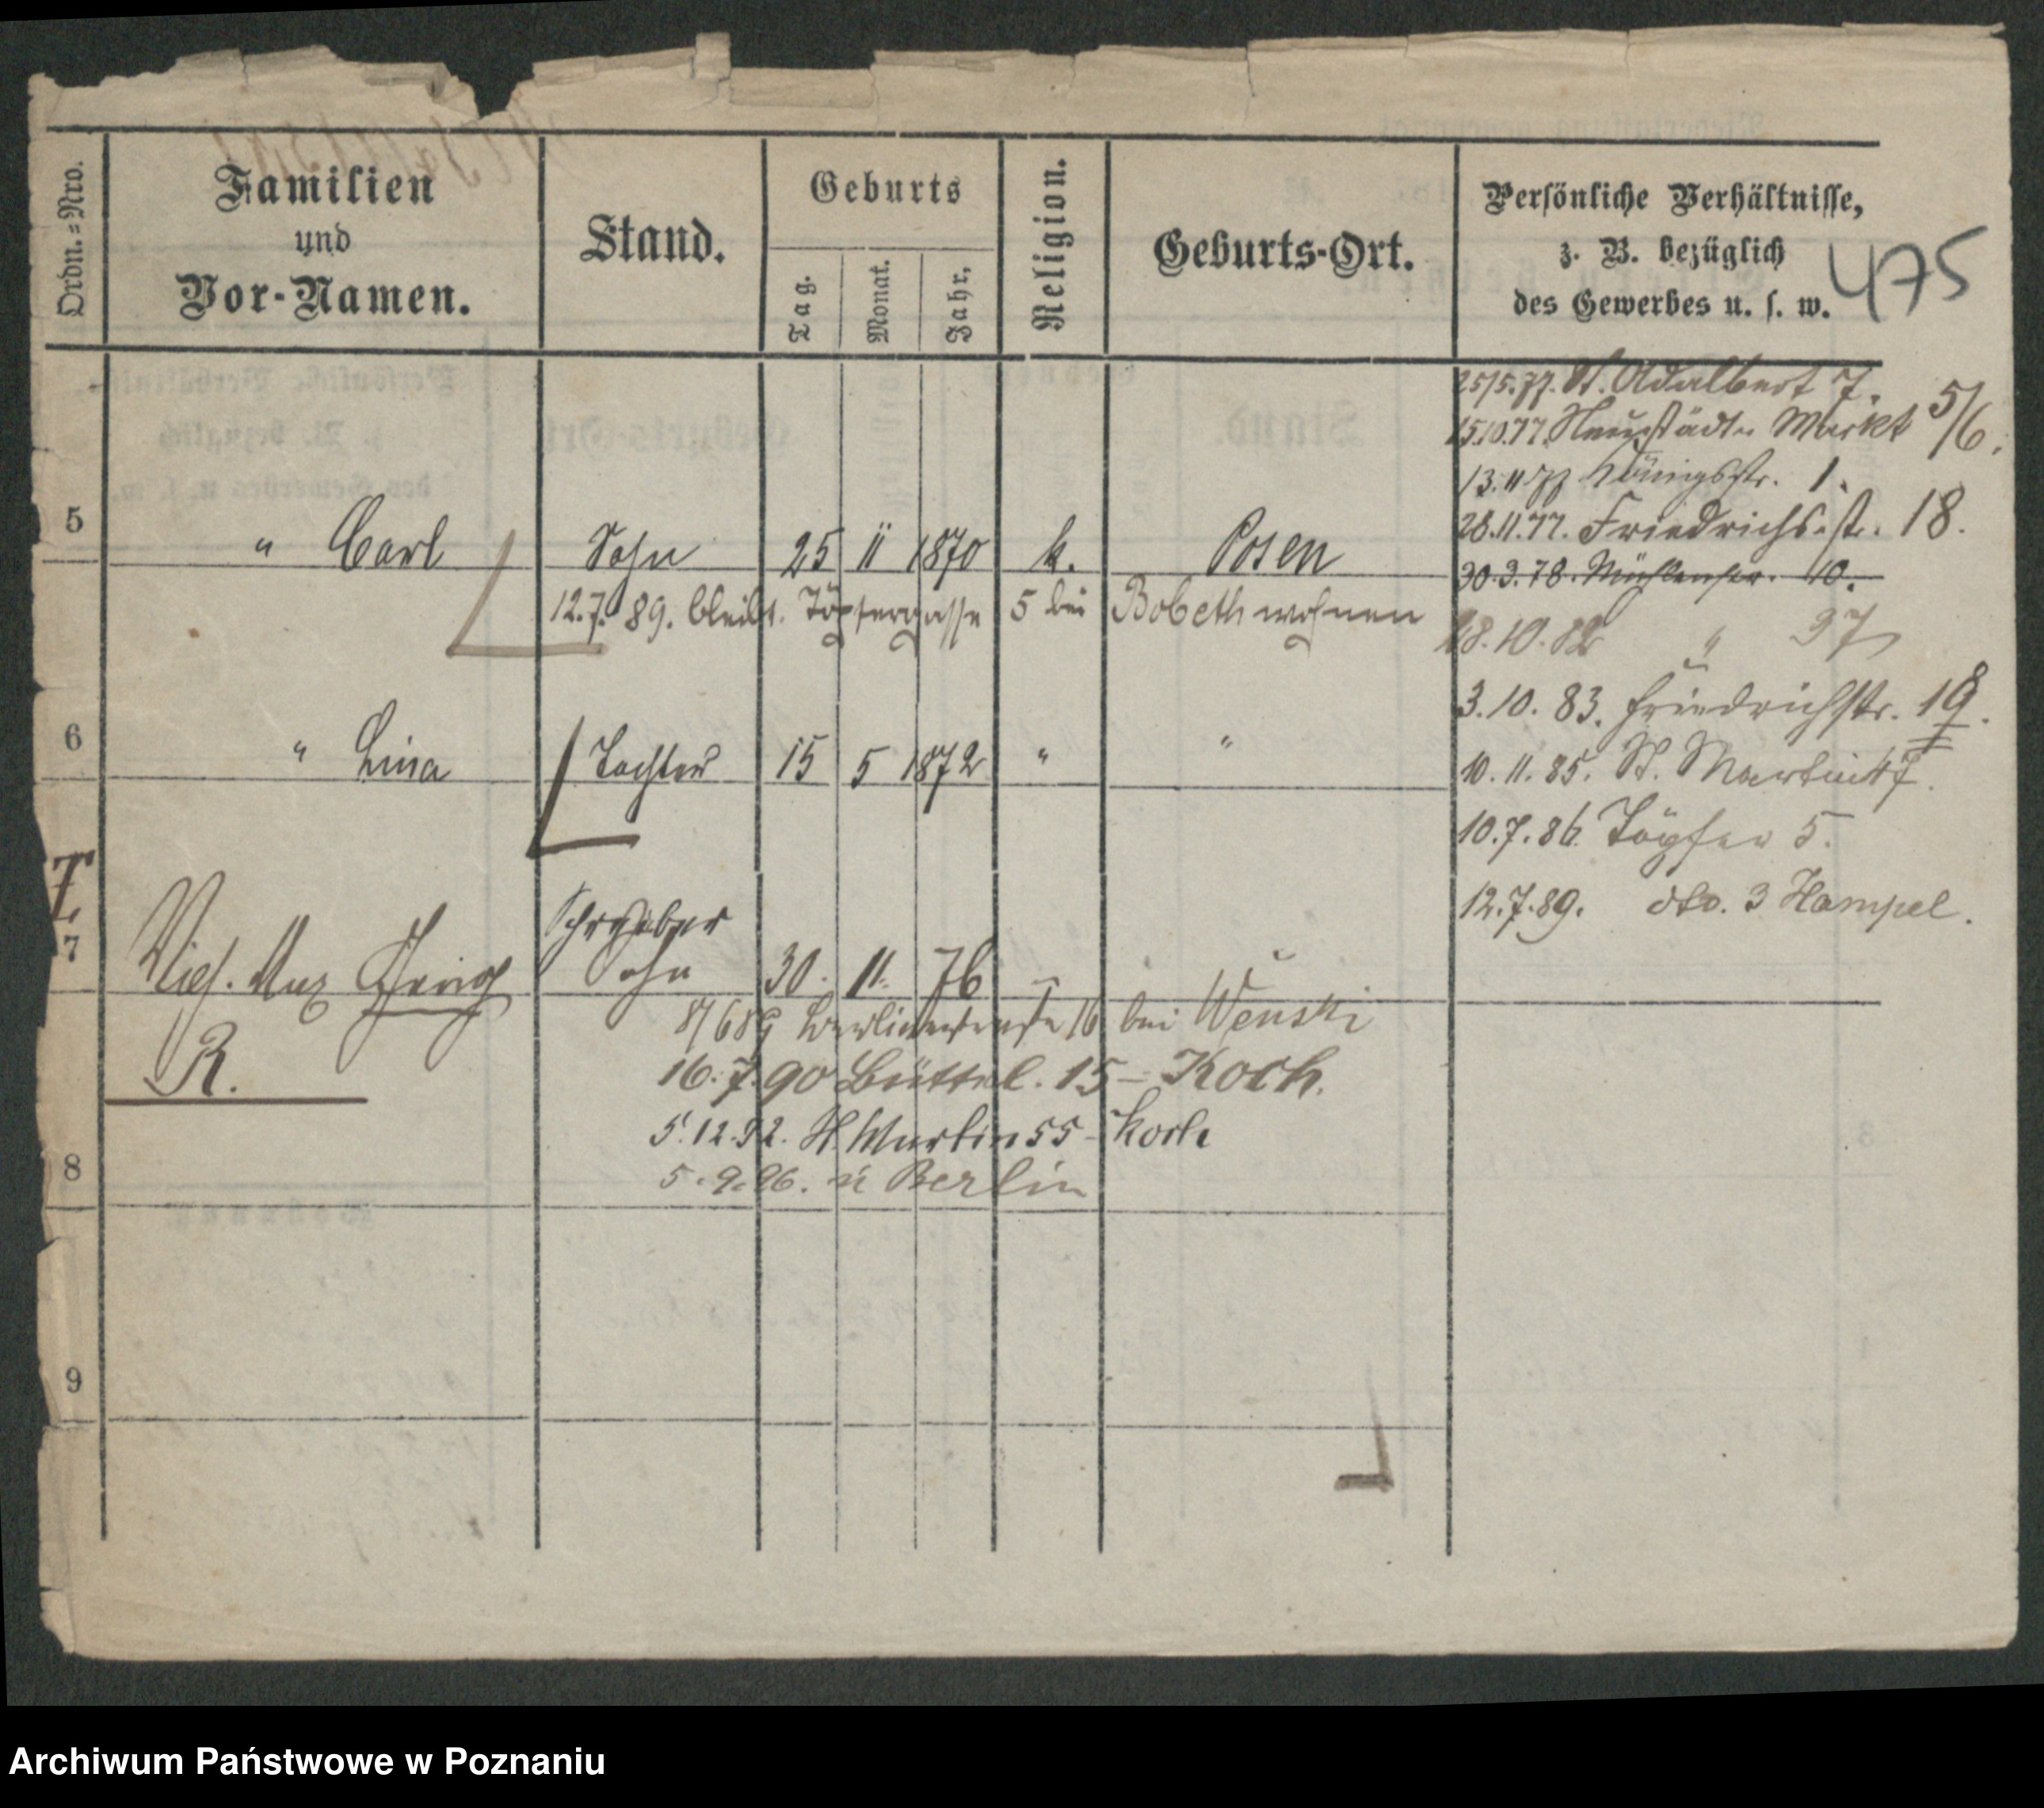 Ordn.-Nro.
Familien
und
Vor-Namen.
Stand.
Geburts
Tag.
Monat.
Jahr.
Religion.
Geburts-Ort.
Persönliche Verhältnisse,
z. B. bezüglich
des Gewerbes u. s. w.
475
25/5.77. St. Adalbert 7.
15.10.77. Neustädt. Markt 5/6.
13.11.77 Königsstr. 1.
28.11.77. Friedrichsstr. 18.
30.3.78. Mühlenstr. 10.
18.10.82 " 37
3.10.83. Friedrichstr. 19.
10.11.85. St. Martin 47.
10.7.86. Töpfer 5.
12.7.89. dto. 3 Hampel.
5 " Carl Sohn 25 11 1870 k. Posen
12.7.89. bleibt. Töpfergasse 5 bei Bobeth wohnen
6 " Lina Tochter 15 5 1872 " "
7 Max Schreiber
Sohn 30. 11. 76
8/6 89 Berlinerstraße 16 bei Wenski
R.
16.7.90 Büttel. 15 – Koch.
5.12.92. St. Martin 55 – Koch
5.9.96. n Berlin
8
9
Archiwum Państwowe w Poznaniu